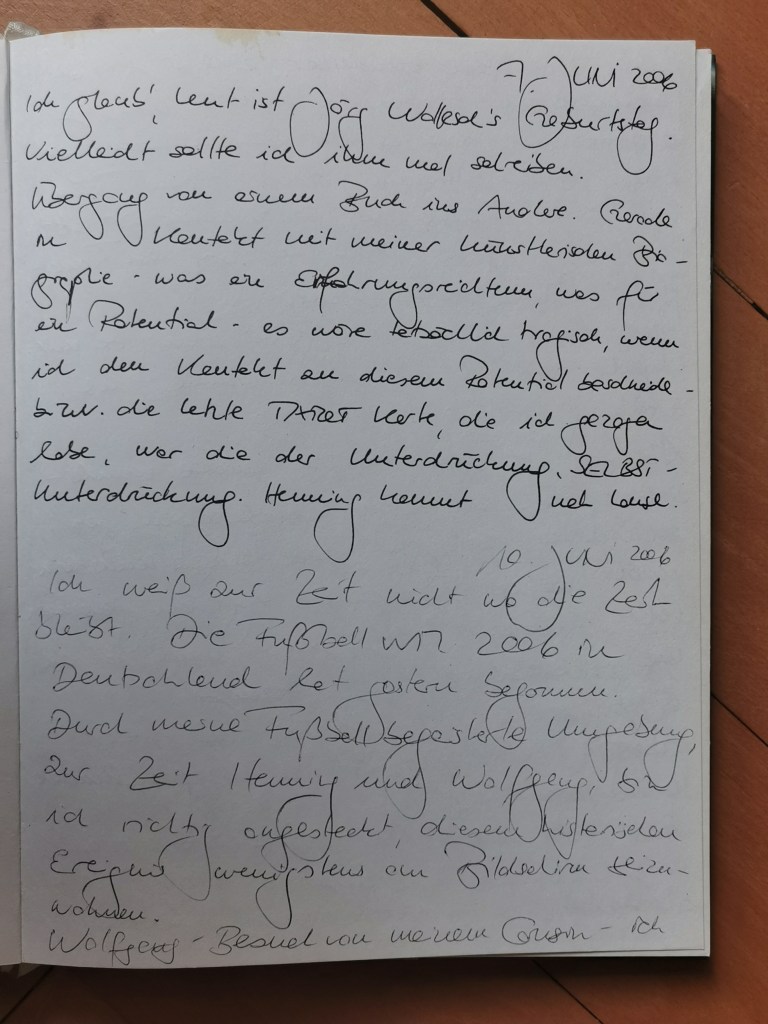 7. JUNI 2006
Ich glaub', heut ist Jörg Geburtstag.
Vielleicht sollte ich ihm mal schreiben.
Übergang von einem Buch ins Andere. Gerade
in Kontakt mit meiner künstlerischen Bio-
graphie - was ein Erfahrungsreichtum, was für
ein Potential - es wäre tatsächlich tragisch, wenn
ich den Kontakt an diesem Potential beschneide -
bzw. die letzte TAROT Karte, die ich gezogen
habe, war die der Unterdrückung. SELBST-
Unterdrückung. Henning kommt nach Hause.
10. JUNI 2006
Ich weiß zur Zeit nicht wo die Zeit
bleibt. Die Fußball WM 2006 in
Deutschland hat gestern begonnen.
Durch meine Fußballbegeisterte Umgebung,
zur Zeit Henning und Wolfgang, bin
ich richtig angesteckt, diesem historischen
Ereignis wenigstens am Bildschirm beizu-
wohnen.
Wolfgang - Besuch von meinem Cousin - ich